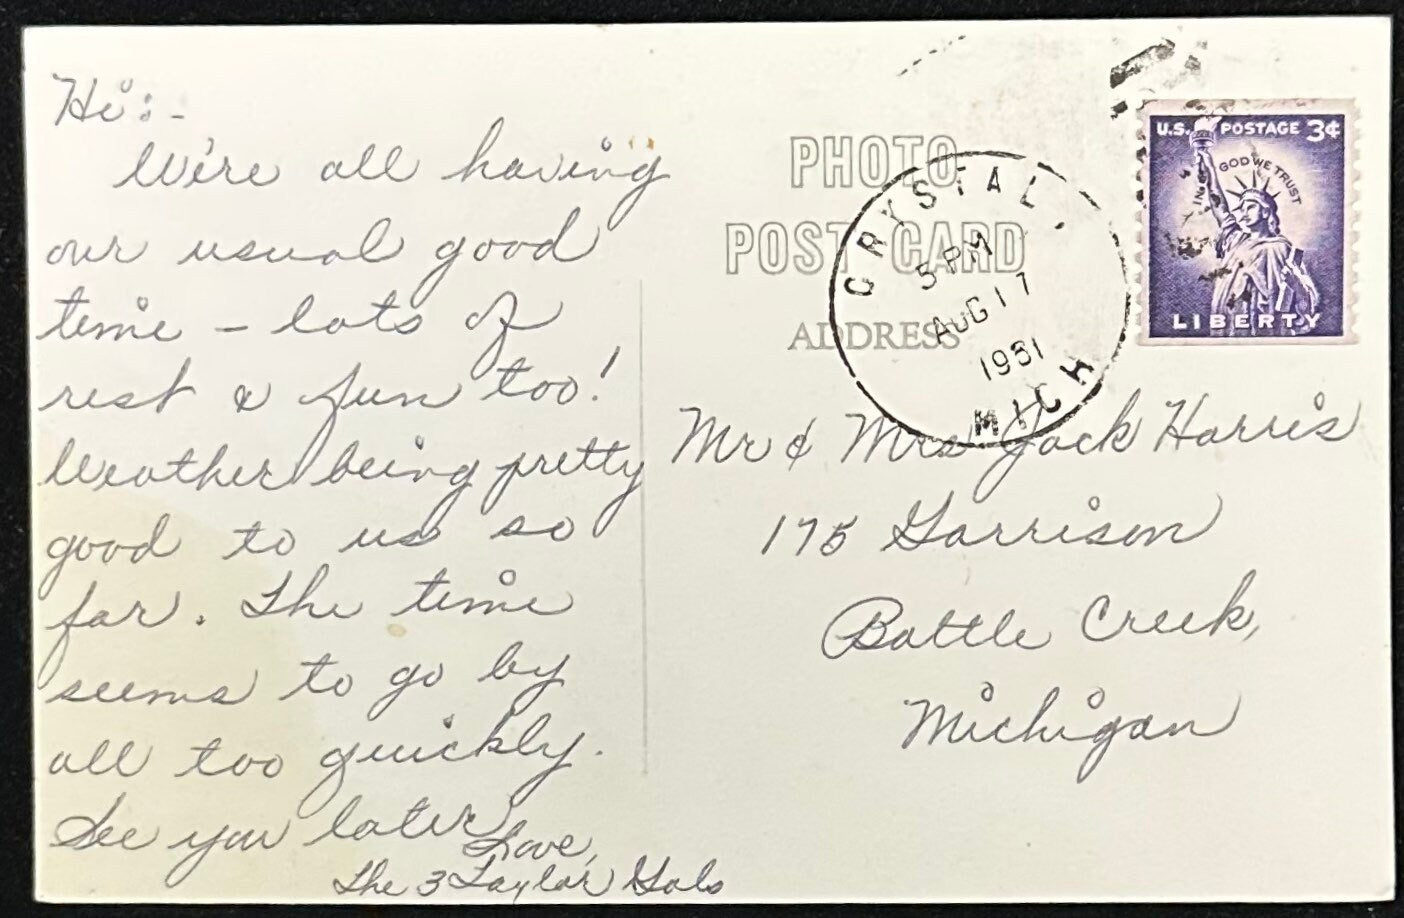 Hi:-
We're all having
our usual good
time - lots of
rest & fun too!
Weather being pretty
good to us so
far. The time
seems to go by
all too quickly.
See you later
Love,
The 3 Taylor Gals
PHOTO
POST CARD
ADDRESS
CRYSTAL,
5 PM
AUG 17
1961
MICH
U.S. POSTAGE 3¢
IN GOD WE TRUST
LIBERTY
Mr & Mrs Jack Harris
175 Garrison
Battle Creek,
Michigan